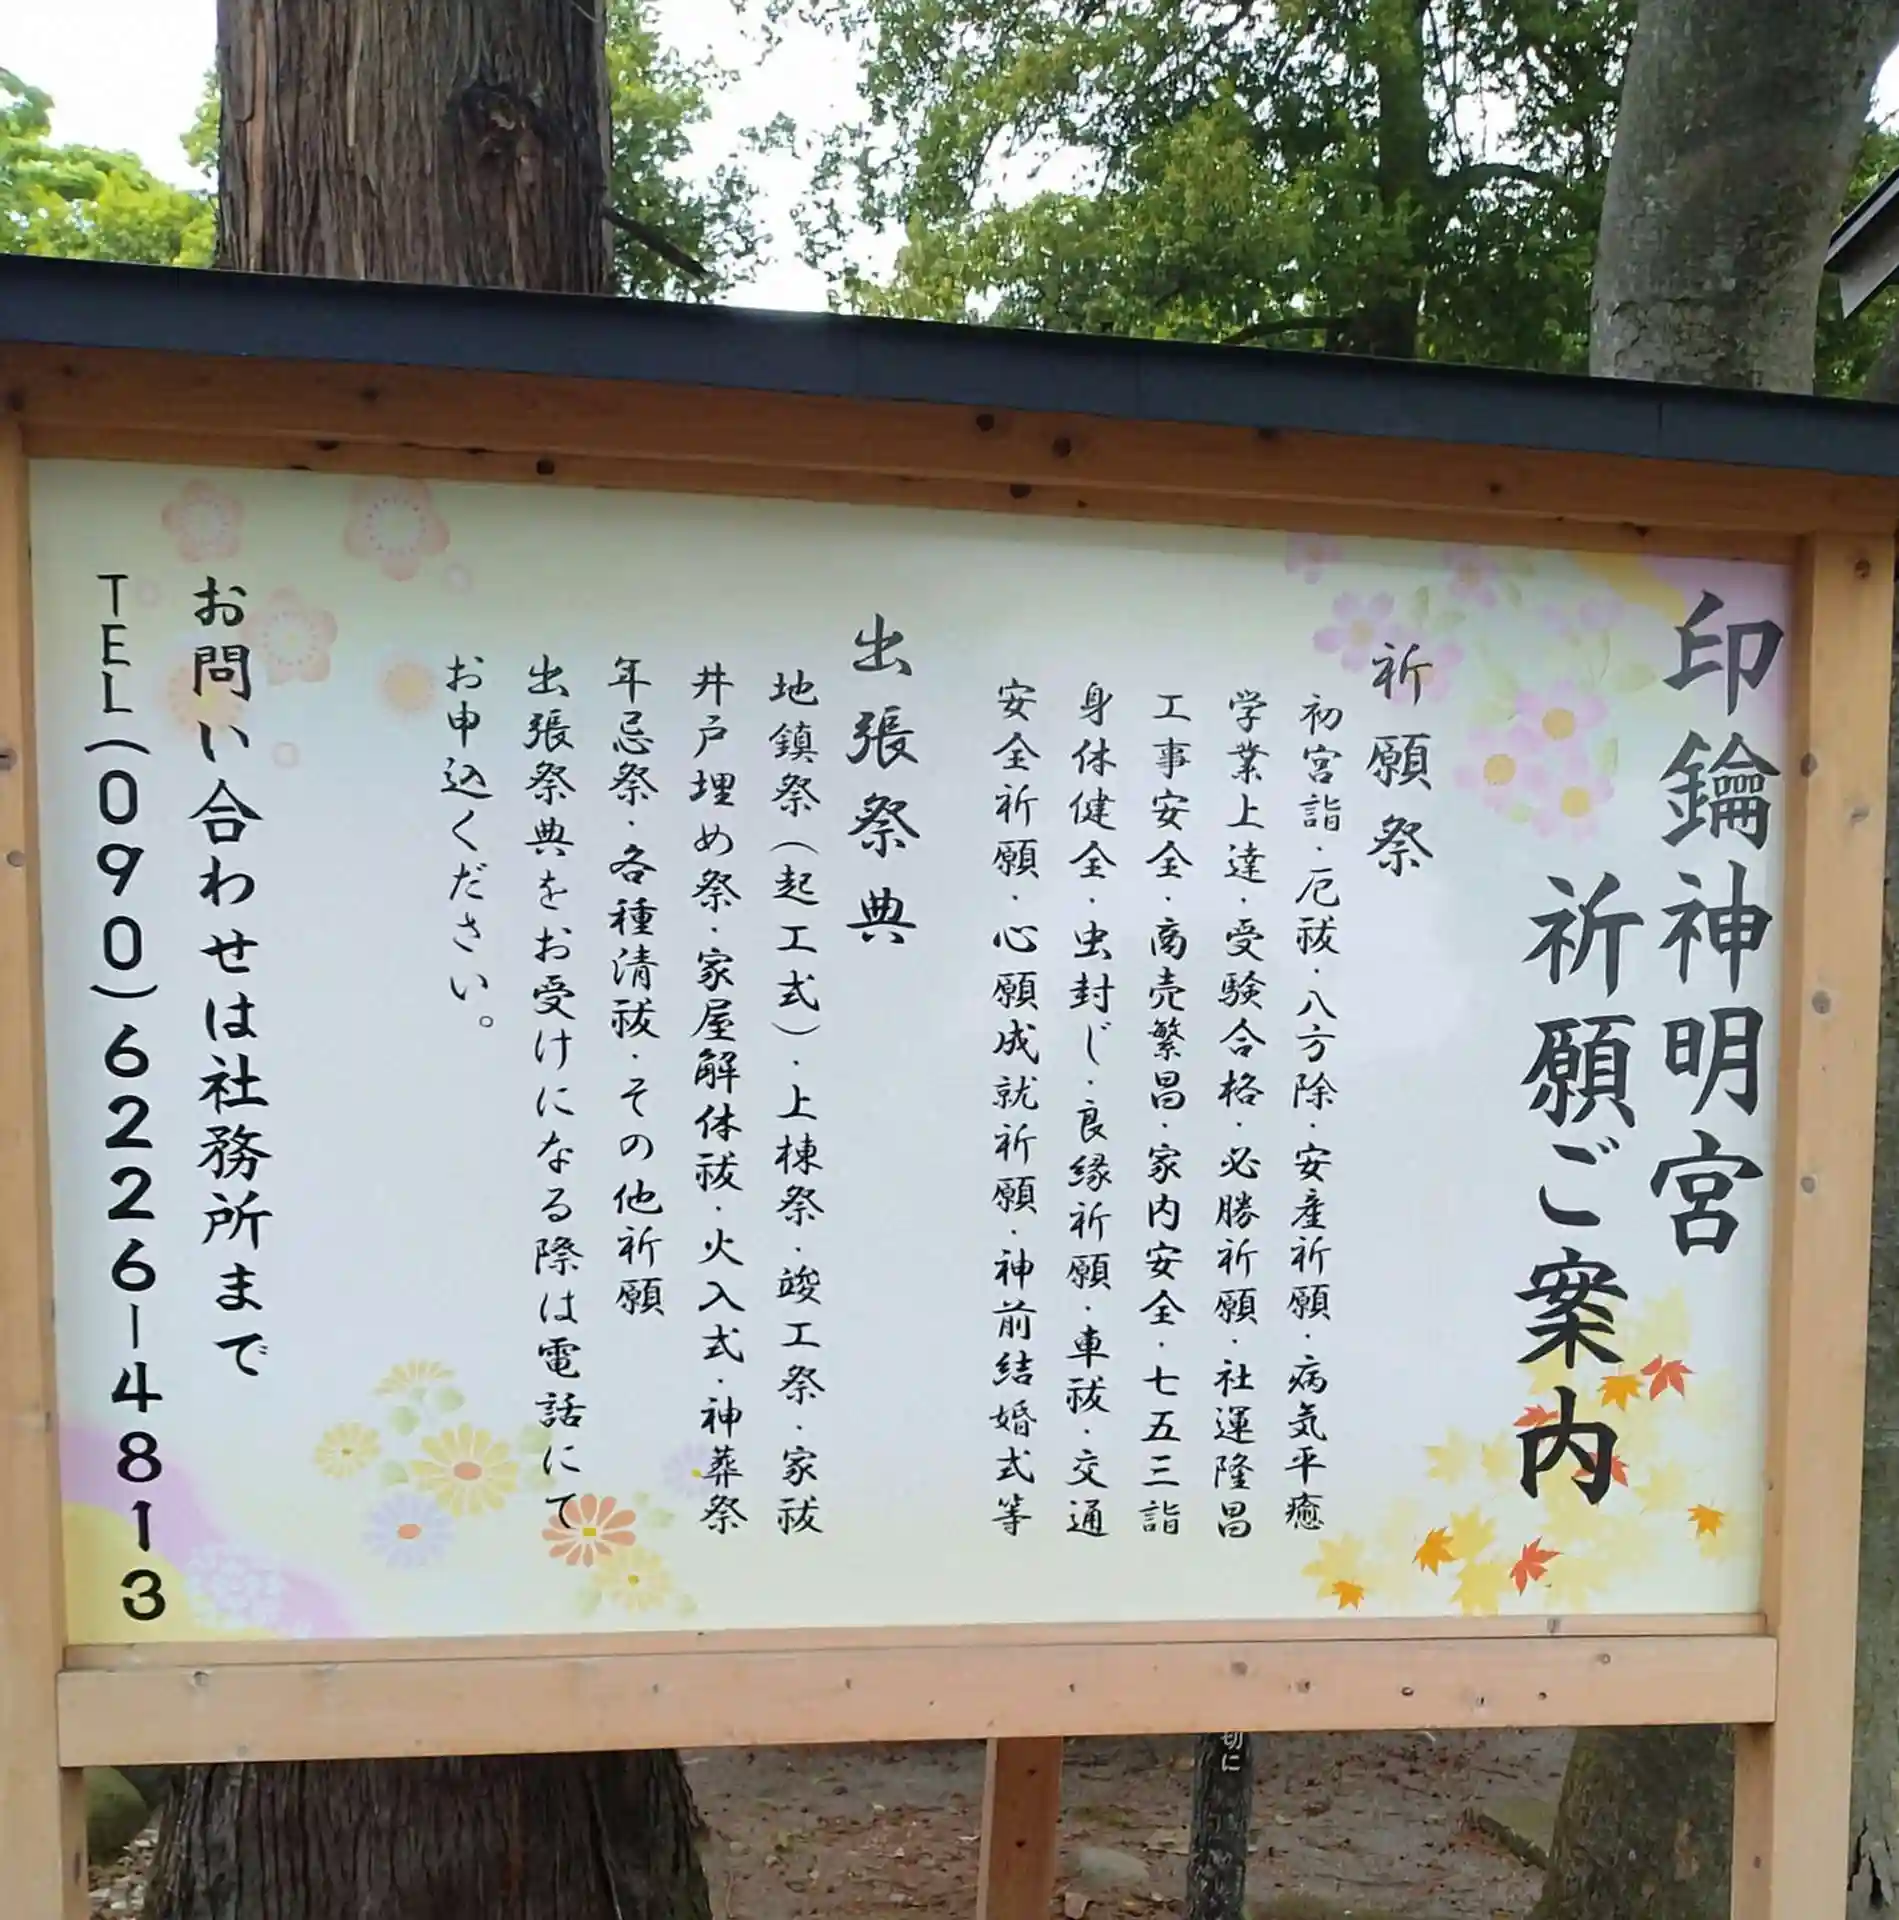 印鑰神明宮
祈願ご案内
祈願祭
初宮詣・厄祓・八方除・安産祈願・病気平癒
学業上達・受験合格・必勝祈願・社運隆昌
工事安全・商売繁昌・家内安全・七五三詣
身体健全・虫封じ・良縁祈願・車祓・交通
安全祈願・心願成就祈願・神前結婚式等
出張祭典
地鎮祭（起工式）・上棟祭・竣工祭・家祓
井戸埋め祭・家屋解体祓・火入式・神葬祭
年忌祭・各種清祓・その他祈願
出張祭典をお受けになる際は電話にて
お申込ください。
お問い合わせは社務所まで
TEL(090)6226-4813
切に